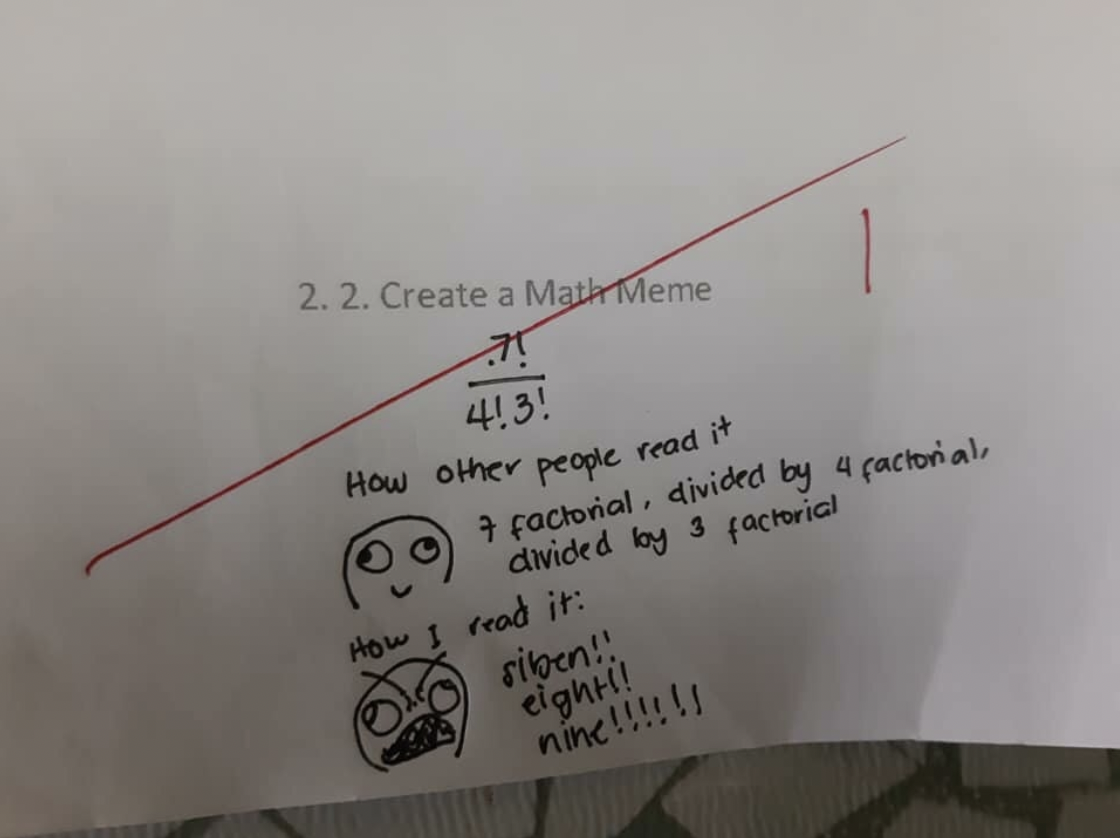 2. 2. Create a Math Meme
1
.7!
4! 3!
How other people read it
7 factorial, divided by 4 factorial,
divided by 3 factorial
How I read it:
siben!!
eight!!
nine!!!!!!